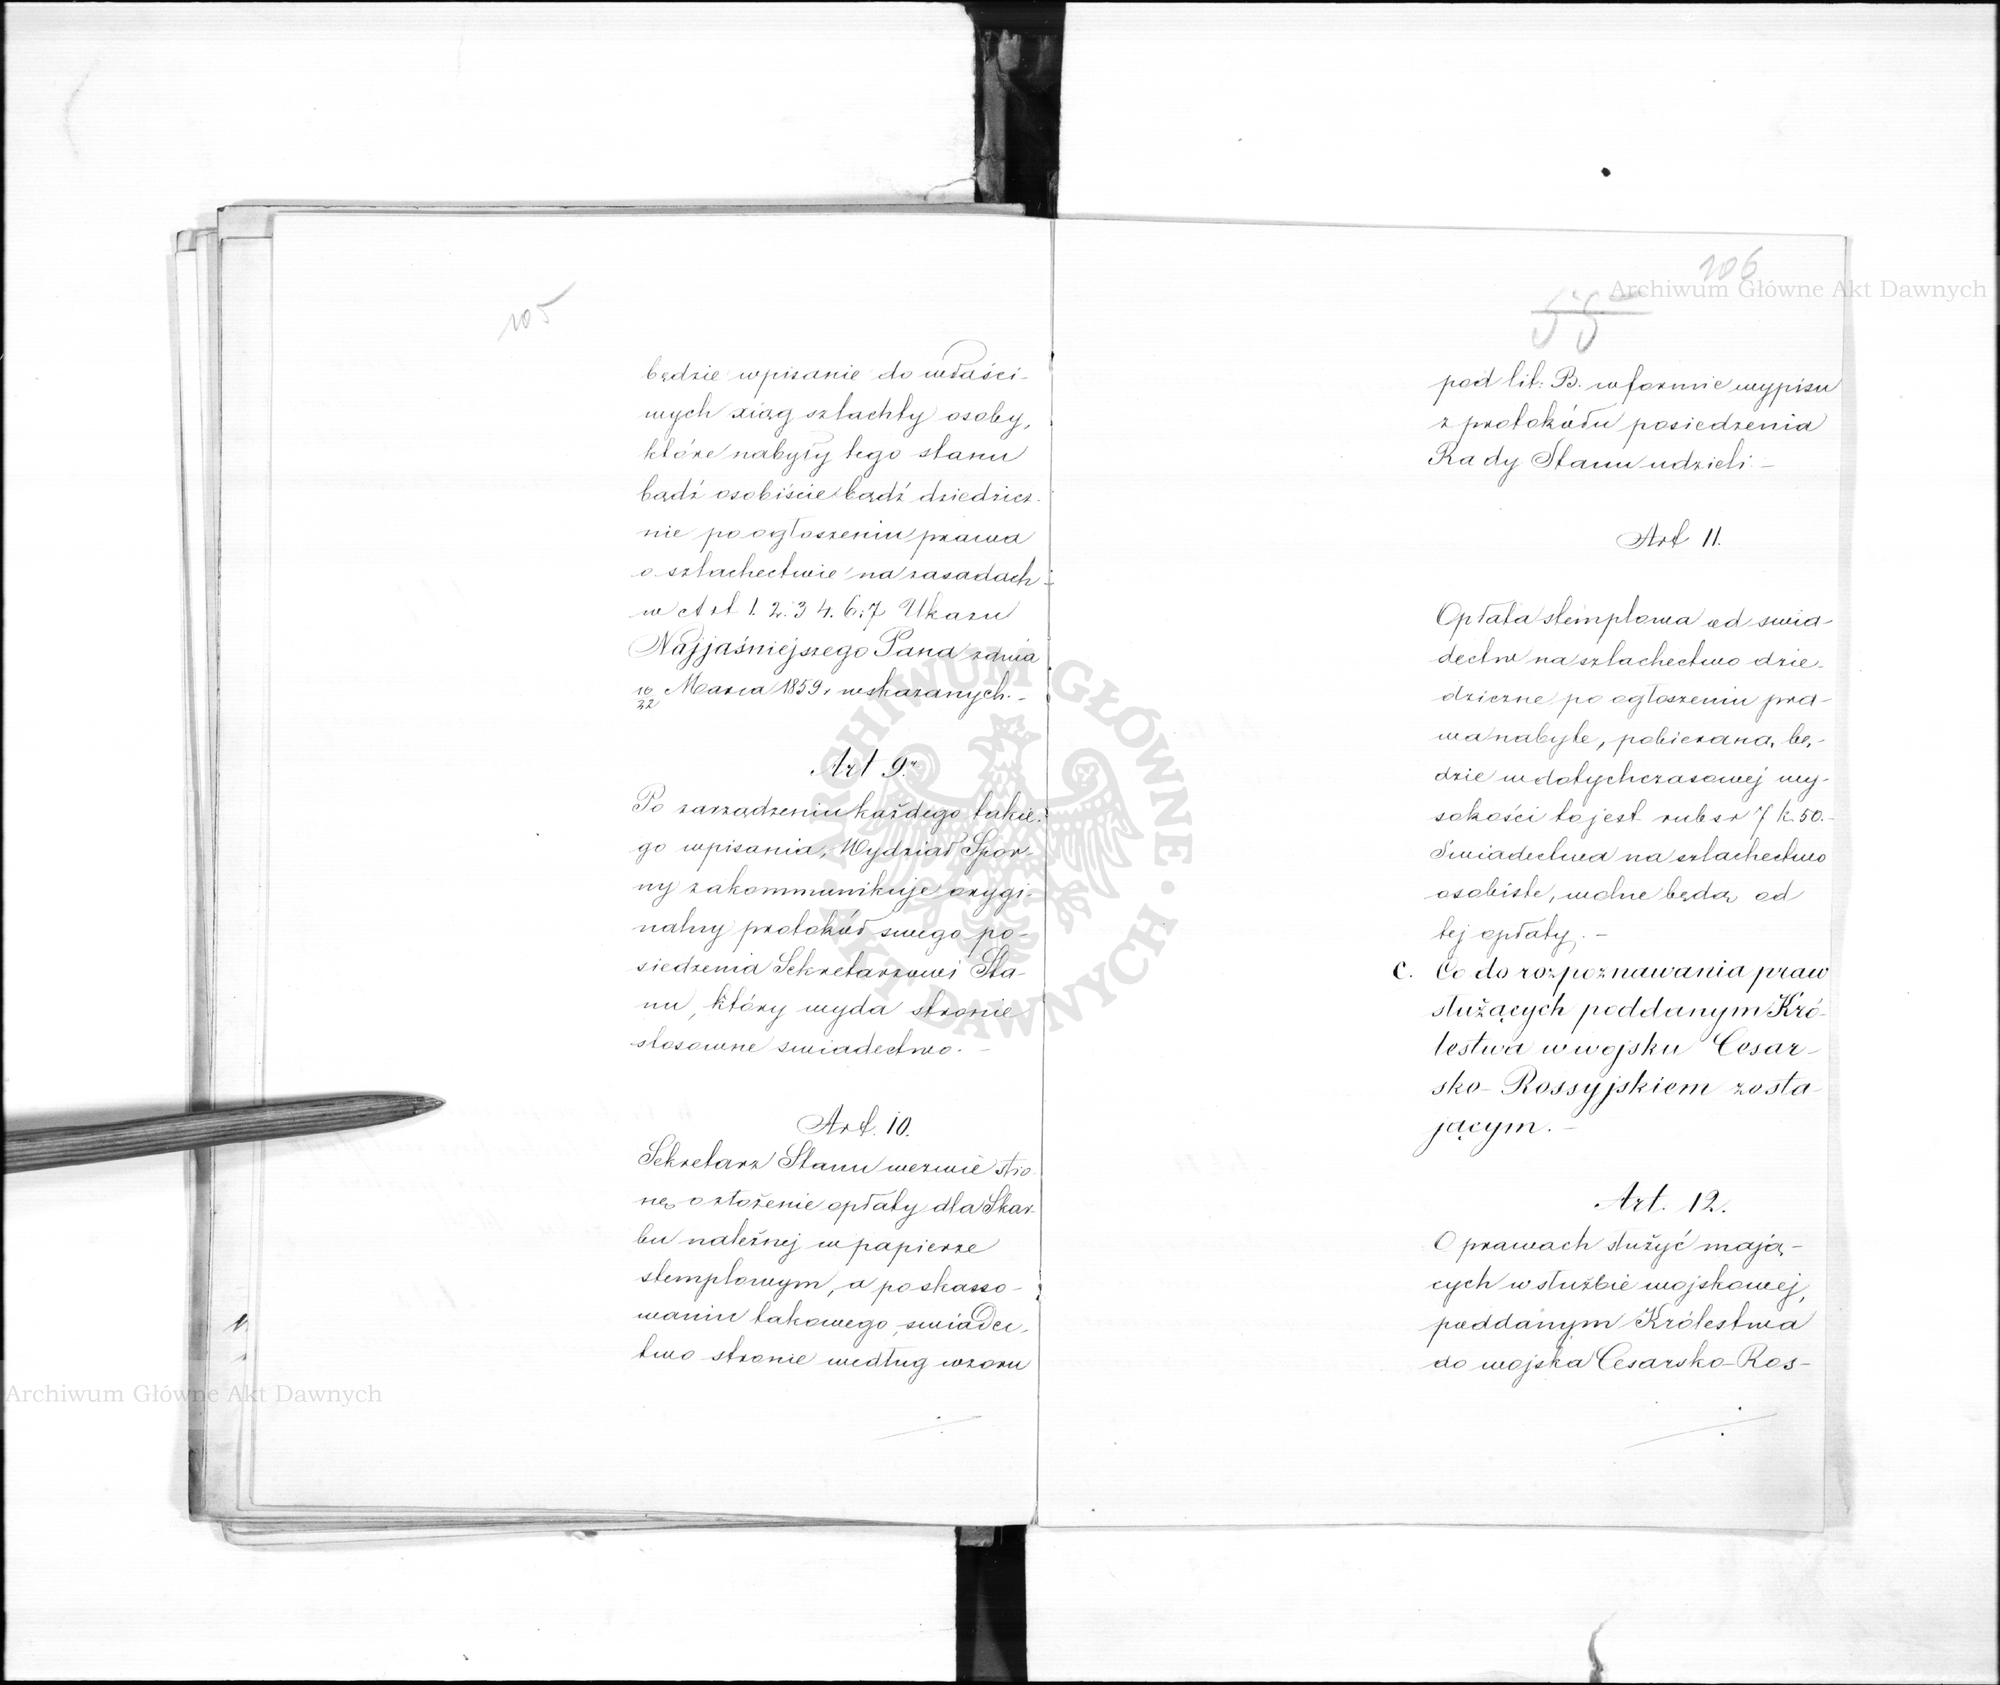 105
będzie wpisanie do właści-
wych xiąg szlachty osoby,
które nabyły tego stanu
bądź osobiście bądź dziedzicz-
nie po ogłoszeniu prawa
o szlachectwie na zasadach
w Art 1. 2. 3 4. 6. 7 Ukazu
Najjaśniejszego Pana z dnia
10/22 Marca 1859 r. wskazanych. -
Art 9.
Po zarządzeniu każdego takie-
go wpisania, Wydział Spor-
ny zakommunikuje orygi-
nalny protokół swego po-
siedzenia Sekretarzowi Sta-
nu, który wyda stronie
stosowne swiadectwo. -
Art. 10.
Sekretarz Stanu wezwie stro-
nę o złożenie opłaty dla Skar-
bu należnej w papierze
stemplowym, a po skasso-
waniu takowego, swiadec-
two stronie według wzoru
106
55
pod lit: B. w formie wypisu
z protokółu posiedzenia
Rady Stanu udzieli. -
Art 11.
Opłata stemplowa od swia-
dectw na szlachectwo dzie-
dziczne po ogłoszeniu pra-
wa nabyte, pobierana, bę-
dzie w dotychczasowej wy-
sokości to jest rub sr 7 k. 50. -
Swiadectwa na szlachectwo
osobiste, wolne będą od
tej opłaty. -
C. Co do rozpoznawania praw
służących poddanym Kró-
lestwa w wojsku Cesar-
sko-Rossyjskiem zosta-
jącym. -
Art. 12.
O prawach służyć mają-
cych w służbie wojskowej,
poddanym Królestwa
do wojska Cesarsko-Ros-
Archiwum Główne Akt Dawnych
Archiwum Główne Akt Dawnych
ARCHIWUM GŁÓWNE AKT DAWNYCH